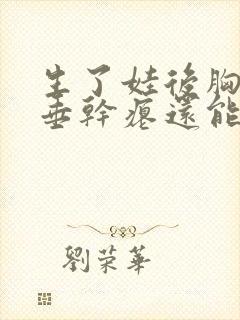 生了娃後胸
垂幹癟還能
劉榮華